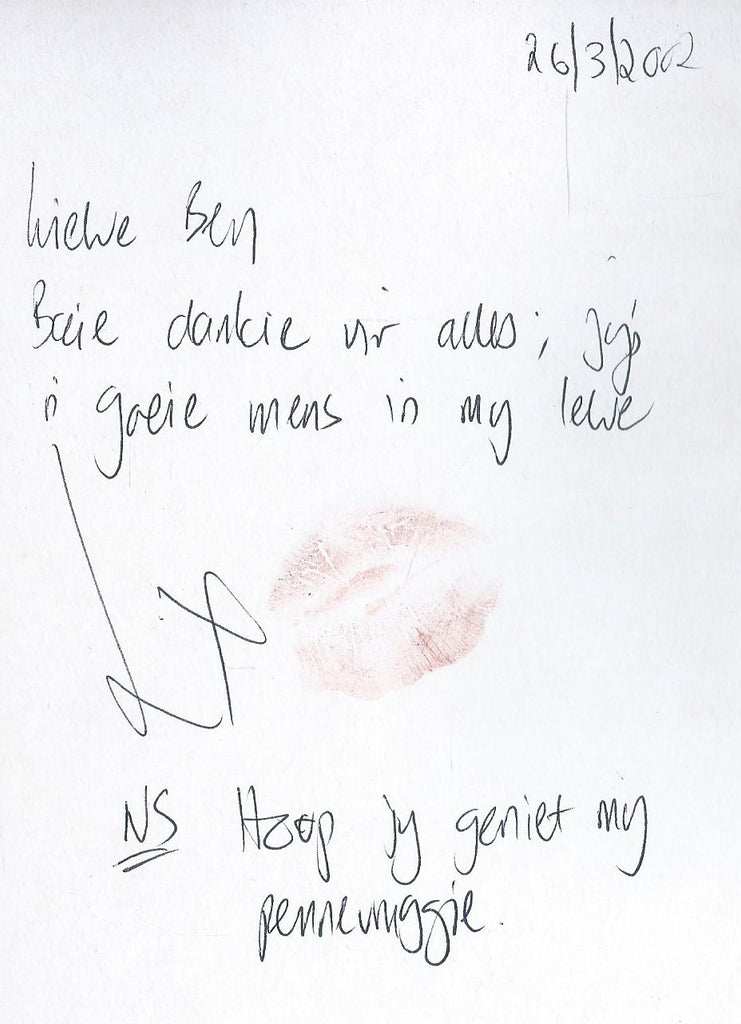 26/3/2002
Liewe Ben
Baie dankie vir alles; jy's
'n goeie mens in my lewe
NS Hoop jy geniet my
pennevruggie.